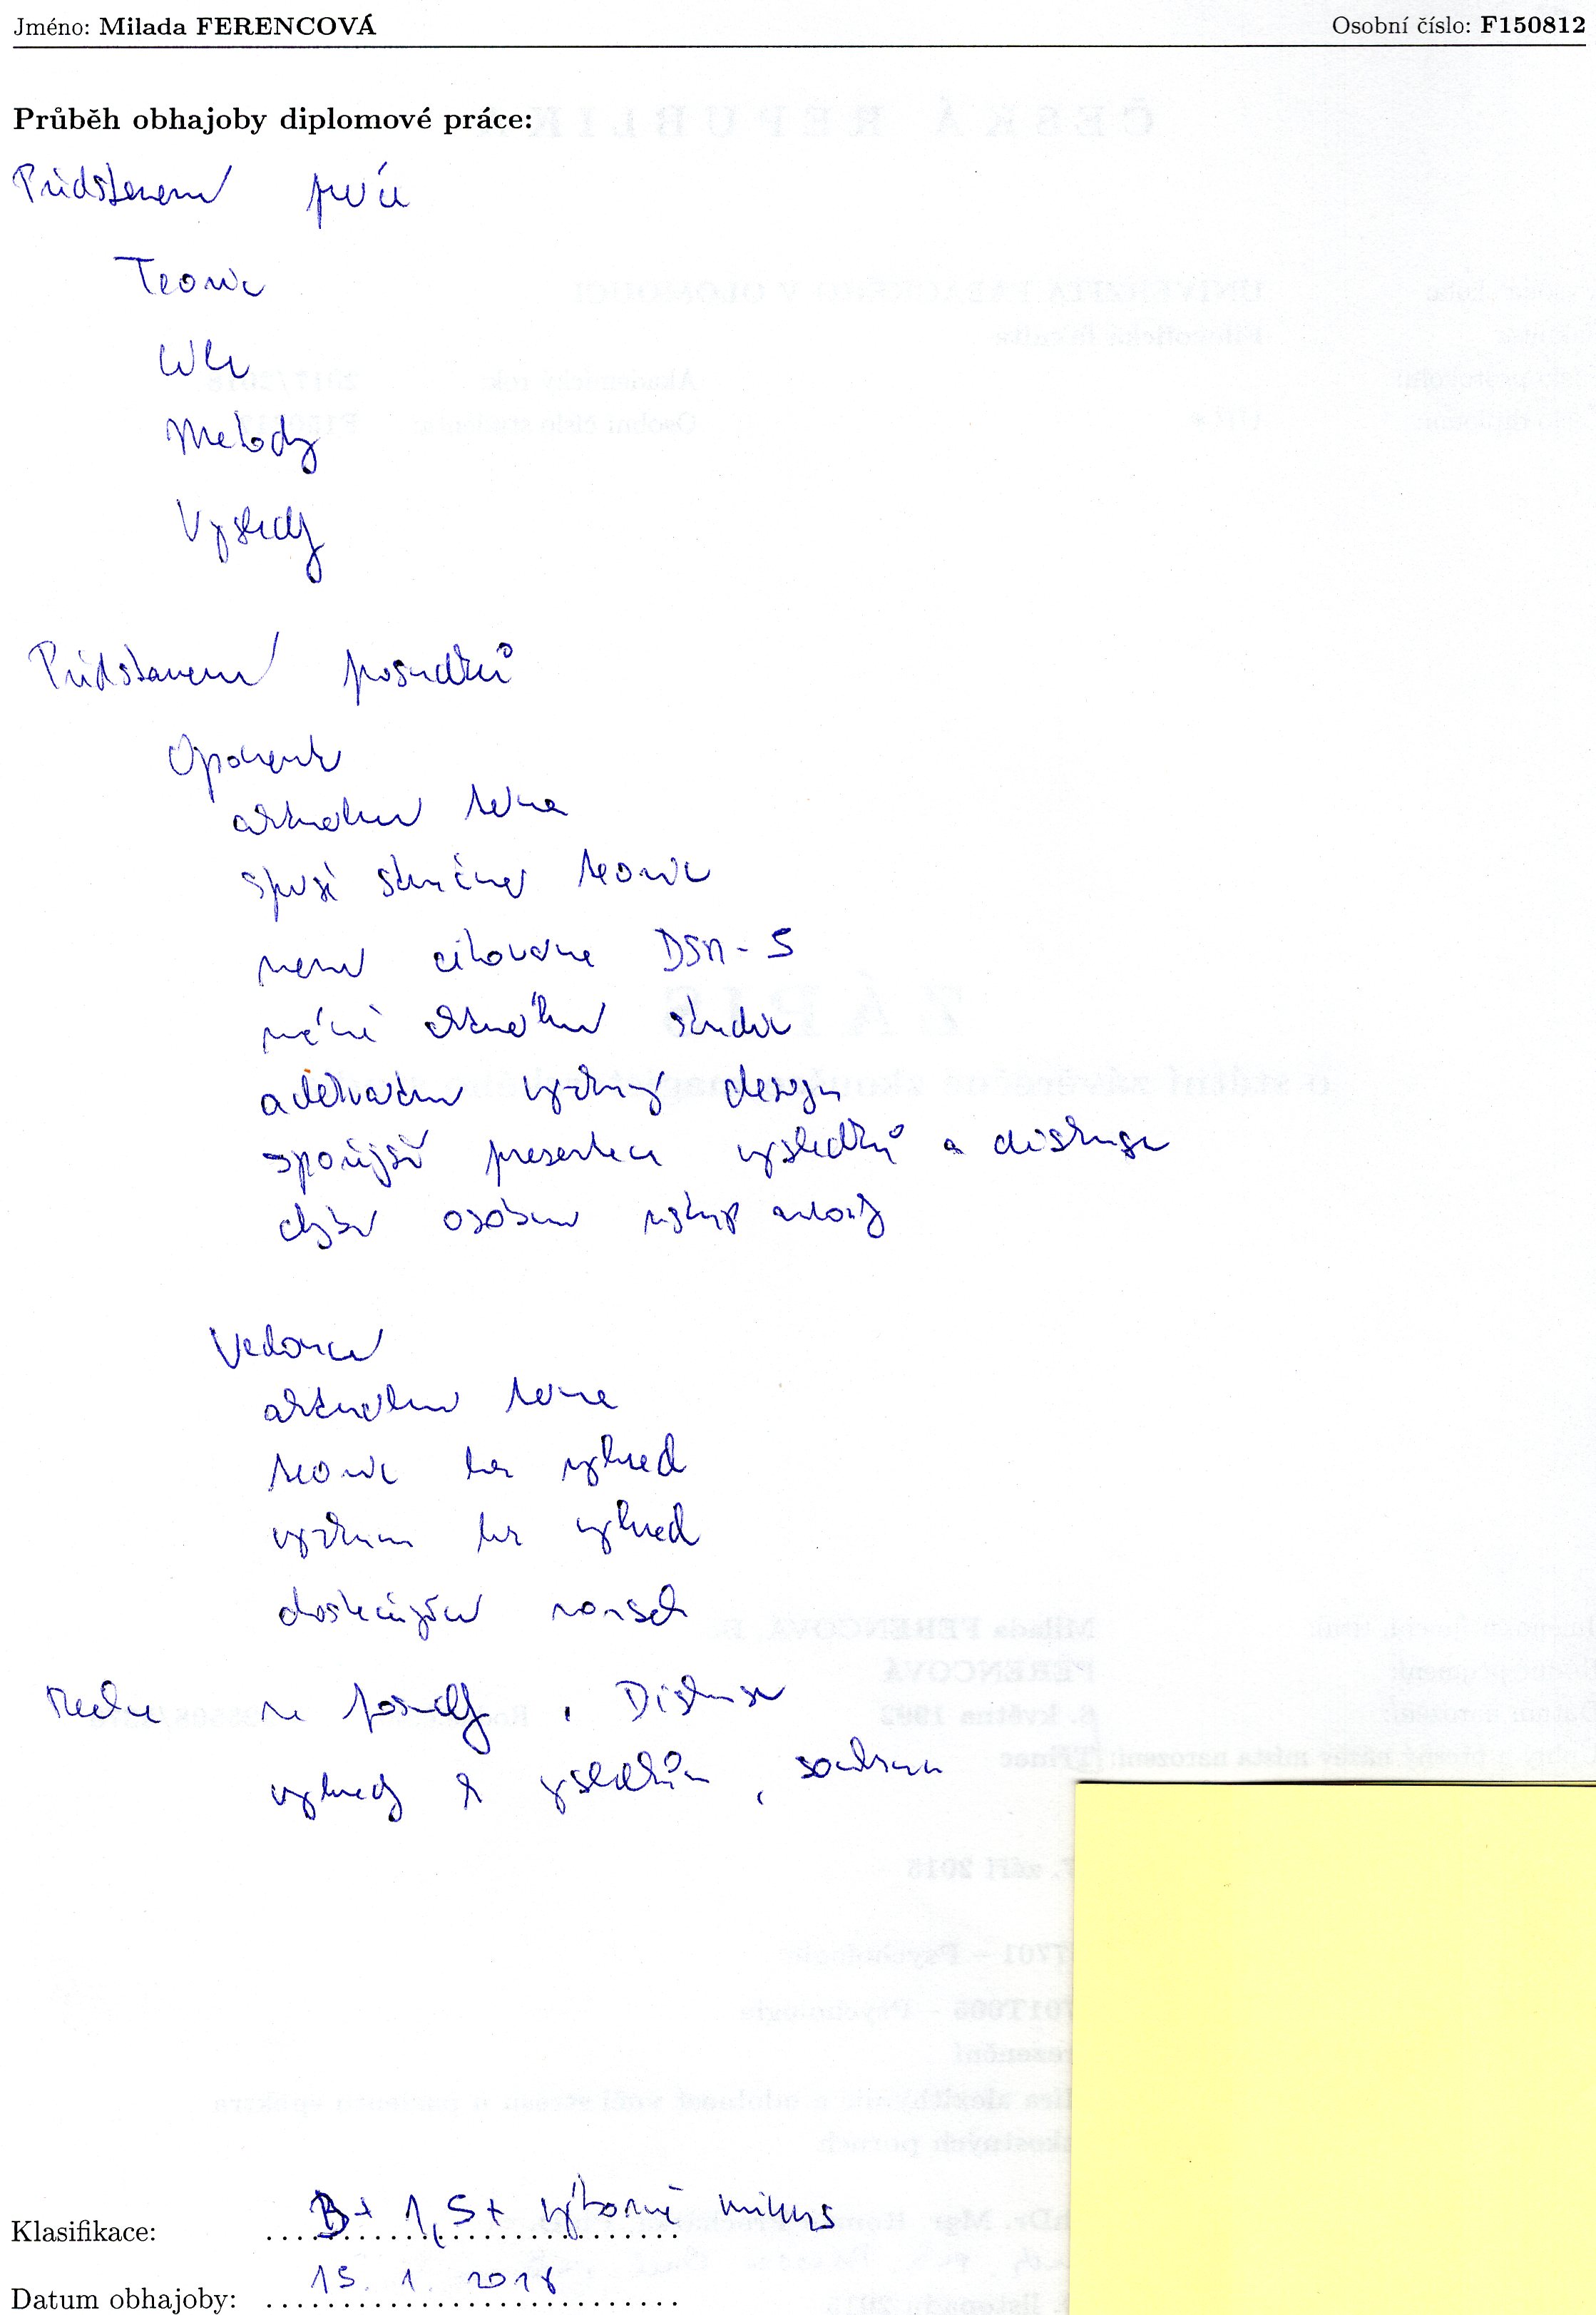 Jméno: Milada FERENCOVÁ Osobní číslo: F150812
Průběh obhajoby diplomové práce:
Představení práce
Teorie
Cíle
Metody
Výsledky
Představení posudků
Oponent
aktuální téma
spíše stručnější teorie
není citováno DSM-5
méně aktuální studie
adekvátní výzkumný design
spornější prezentace výsledků a diskuse
chybí osobní vstup autorky
Vedoucí
aktuální téma
teorie bez výhrad
výzkum bez výhrad
dostačující rozsah
Reakce na posudky, Diskuse
výhrady k výsledkům, souhrn
Klasifikace: B+ 1,5+ výborně minus
Datum obhajoby: 15. 1. 2018